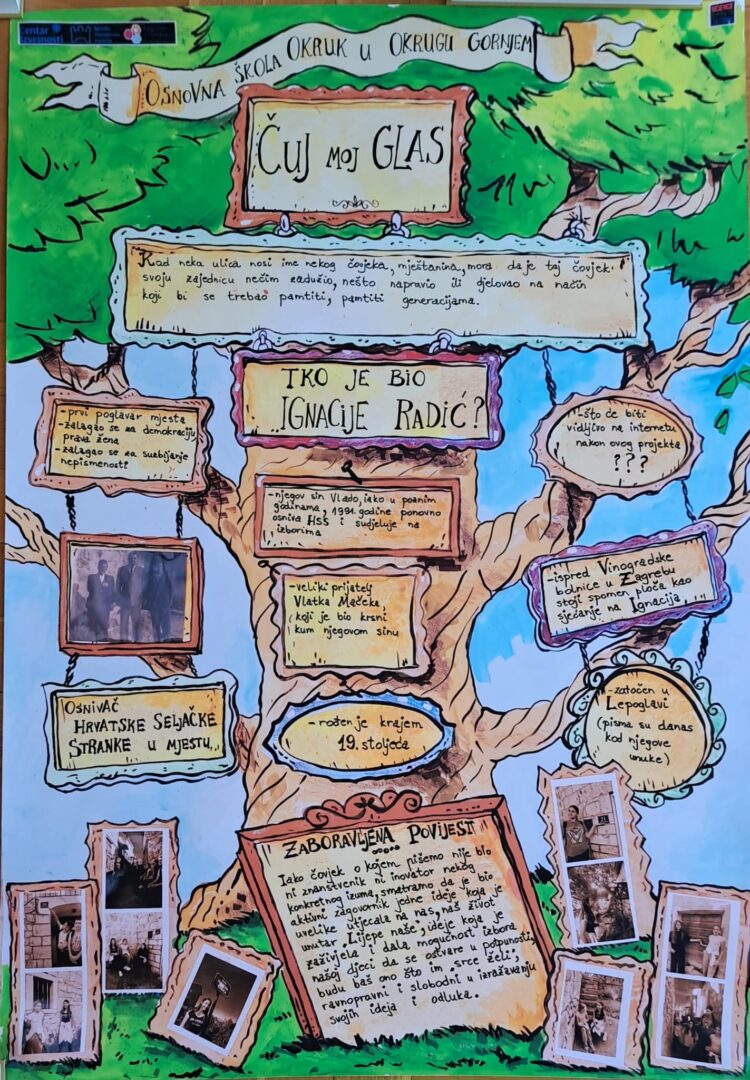 Centar
izvrsnosti
OSNOVNA ŠKOLA OKRUK U OKRUGU GORNJEM
ČUJ MOJ GLAS
Kad neka ulica nosi ime nekog čovjeka, mještanina, mora da je taj čovjek
svoju zajednicu nečim zadužio, nešto napravio ili djelovao na način
koji bi se trebao pamtiti, pamtiti generacijama.
TKO JE BIO
IGNACIJE RADIĆ?
-prvi poglavar mjesta
-zalagao se za demokraciju,
prava žena
-zalagao se za suzbijanje
nepismenosti
-što će biti
vidljivo na internetu
nakon ovog projekta
???
-njegov sin Vlado, iako u poznim
godinama, 1991. godine ponovno
osniva HSS i sudjeluje na
izborima
-ispred Vinogradske
bolnice u Zagrebu
stoji spomen ploča kao
sjećanje na Ignacija
-veliki prijatelj
Vlatka Mačeka,
koji je bio krsni
kum njegovom sinu
OSNIVAČ
HRVATSKE SELJAČKE
STRANKE U MJESTU
-rođen je krajem
19. stoljeća
-zatočen u
Lepoglavi
(pisma su danas
kod njegove
unuke)
ZABORAVLJENA POVIJEST
Iako čovjek o kojem pišemo nije bio
ni znanstvenik ni inovator nekog
konkretnog izuma, smatramo da je bio
aktivni zagovornik jedne ideje koja je
uvelike utjecala na nas, naš život
unutar "Lijepe naše", ideje koja je
zaživjela i dala mogućnost izbora
našoj djeci da se ostvare u potpunosti,
budu baš ono što im "srce želi",
ravnopravni i slobodni u izražavanju
svojih ideja i odluka.